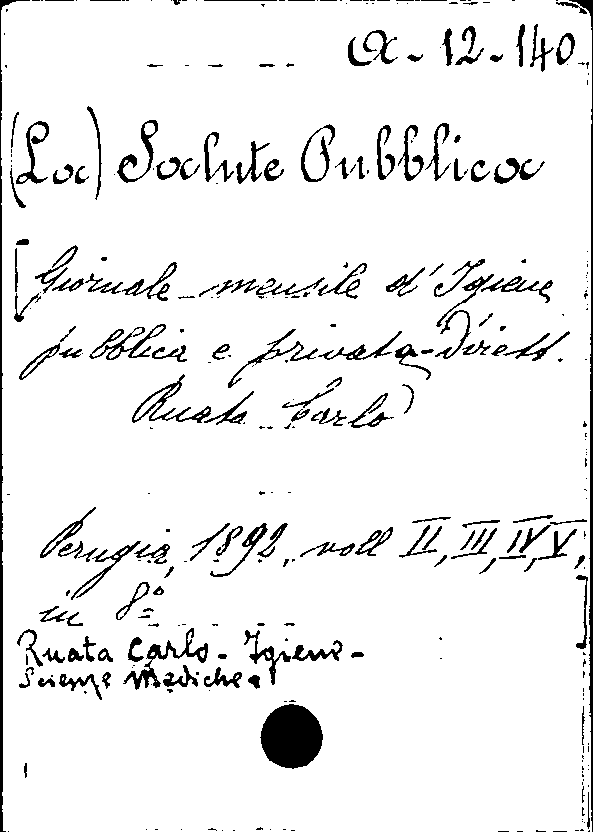 A-12-140
(La) Salute Pubblica
[Giornale mensile d'Igiene
pubblica e privata-Dirett.
Ruata Carlo
Perugia, 1892, voll II, III, IV, V,
in 8º]
Ruata Carlo - Igiene -
Scienze Mediche